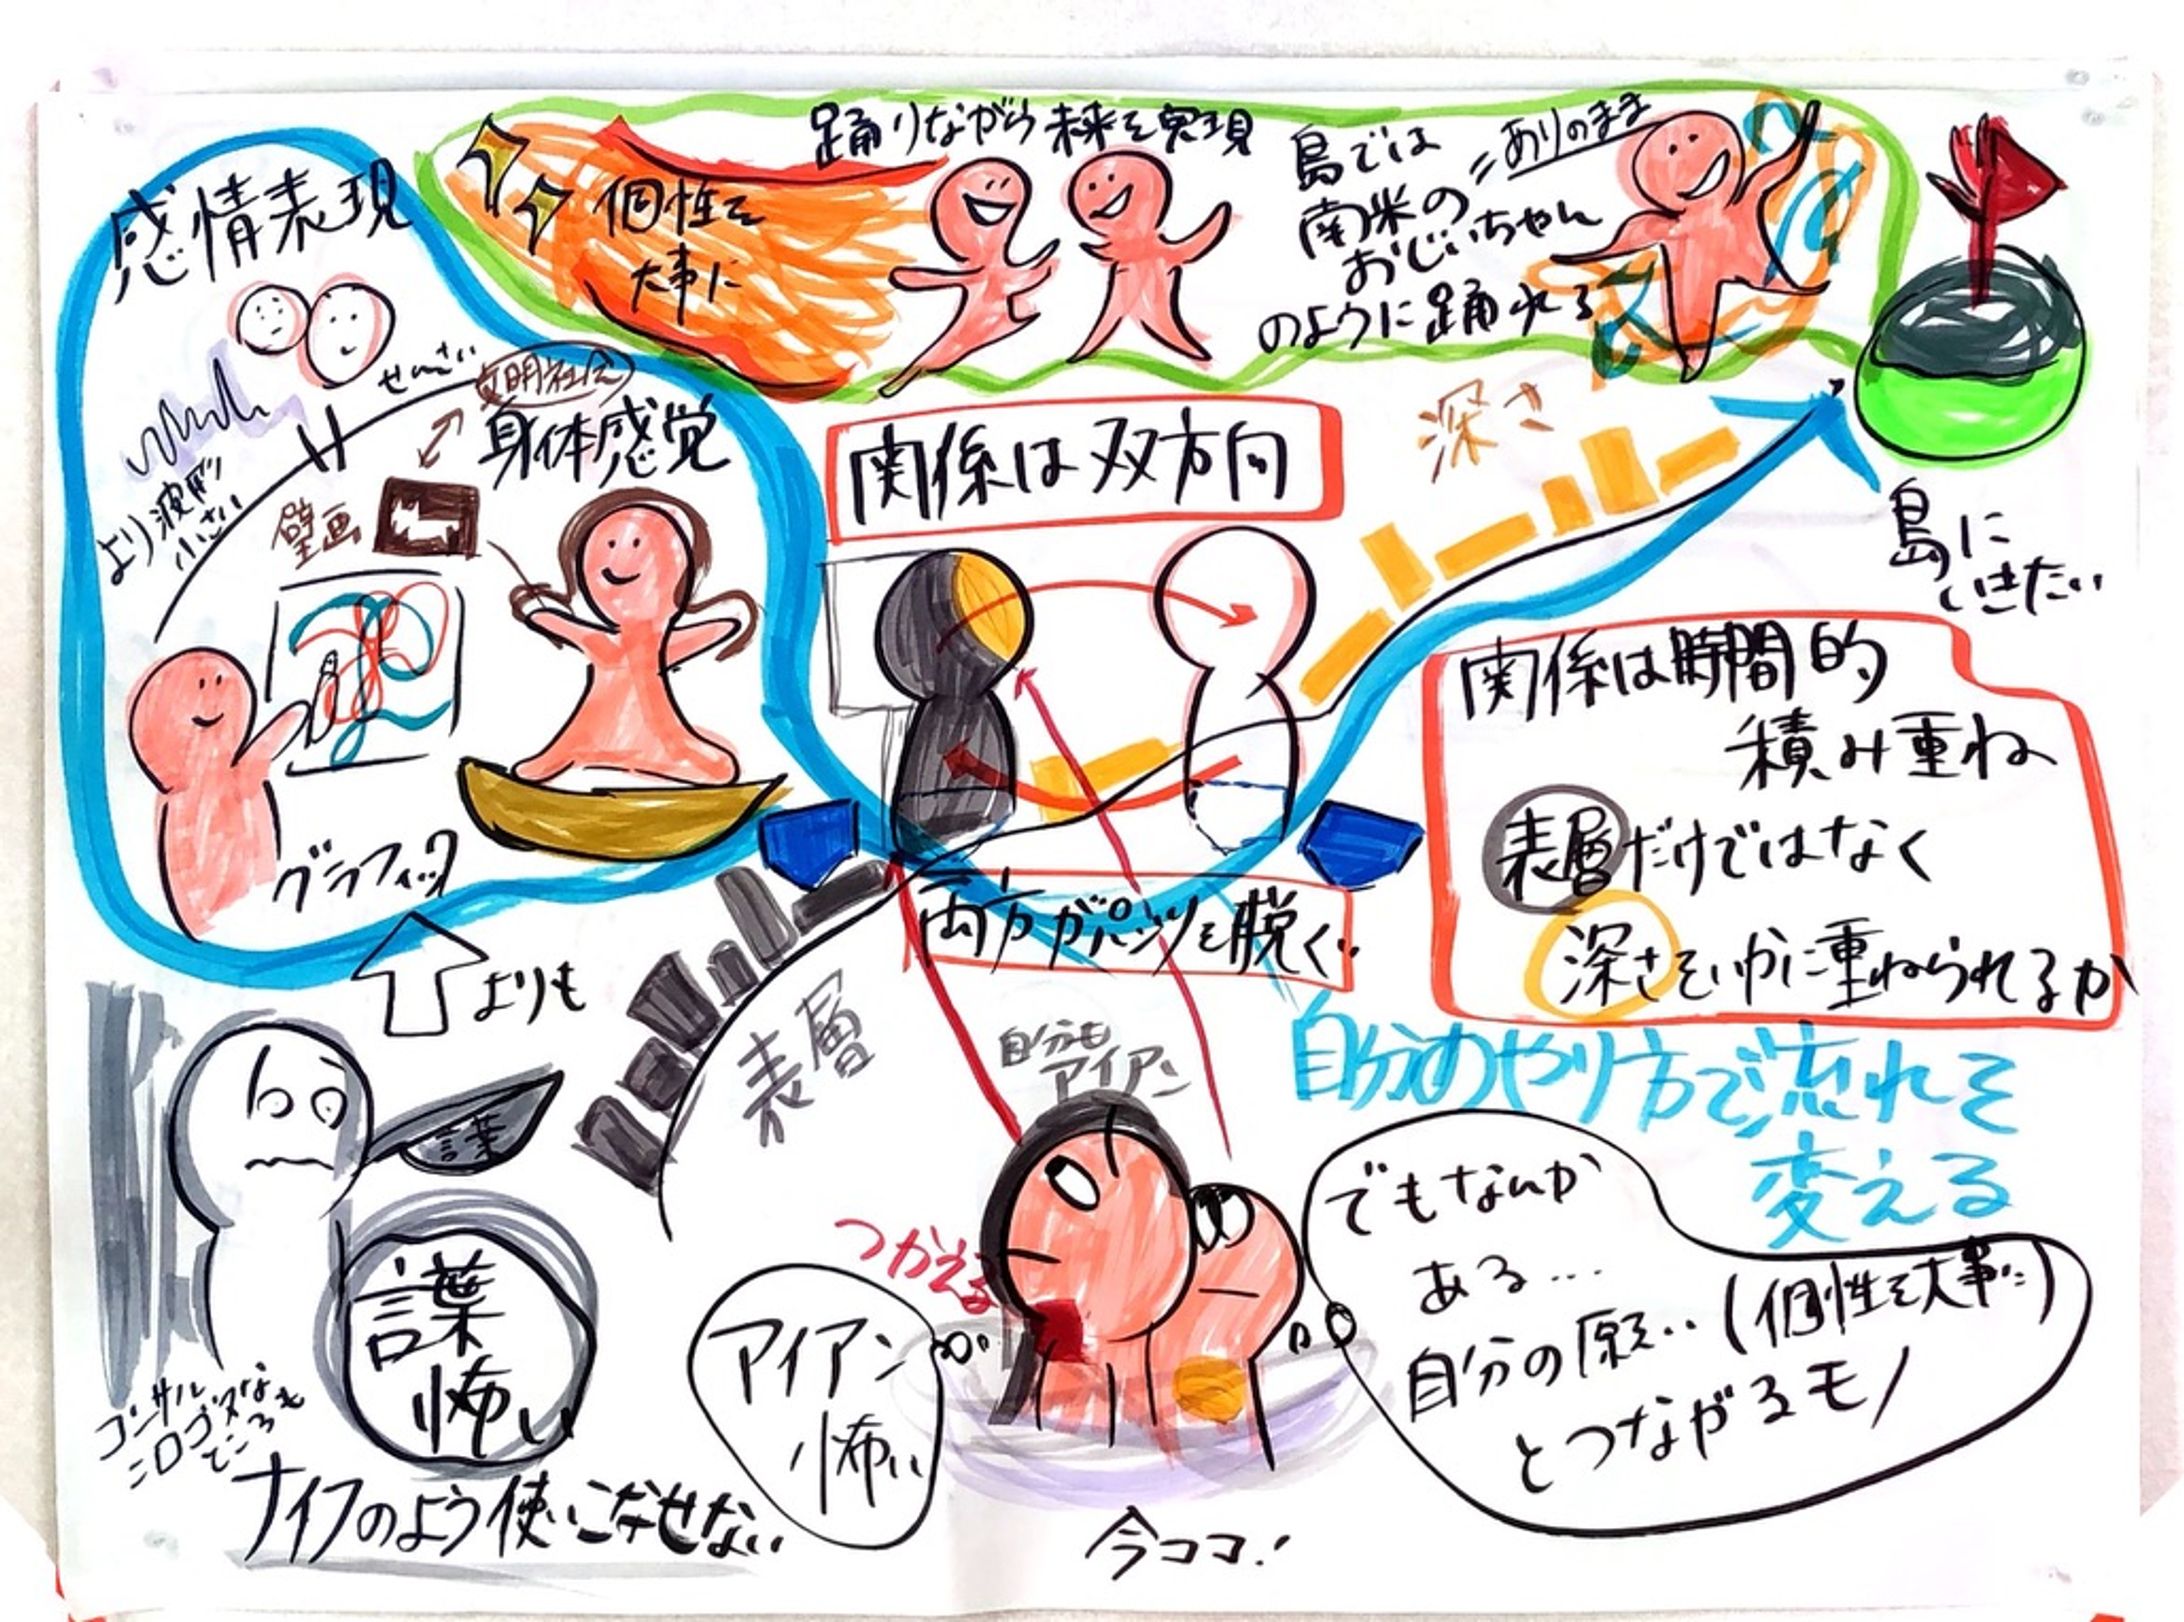 踊りながら未来を実現
個性を
大事に
島では
=ありのまま
南米の
おじいちゃん
のように踊れる
感情表現
せんさい
文明社会
身体感覚
より波形
小さい
壁画
グラフィック
関係は双方向
深さ
島に
いきたい
関係は時間的
積み重ね
表層だけではなく
深さをいかに重ねられるか
両方がパンツを脱ぐ
よりも
表層
自分も
アイアン
自分のやり方で流れを
変える
言葉
言葉
怖い
ゴンサル
ニロゴヌな
ところも
ナイフのよう使いこなせない
つかえる
アイアン
怖い
でもなんか
ある…
自分の願い(個性を大事に)
とつながるモノ
今ココ!